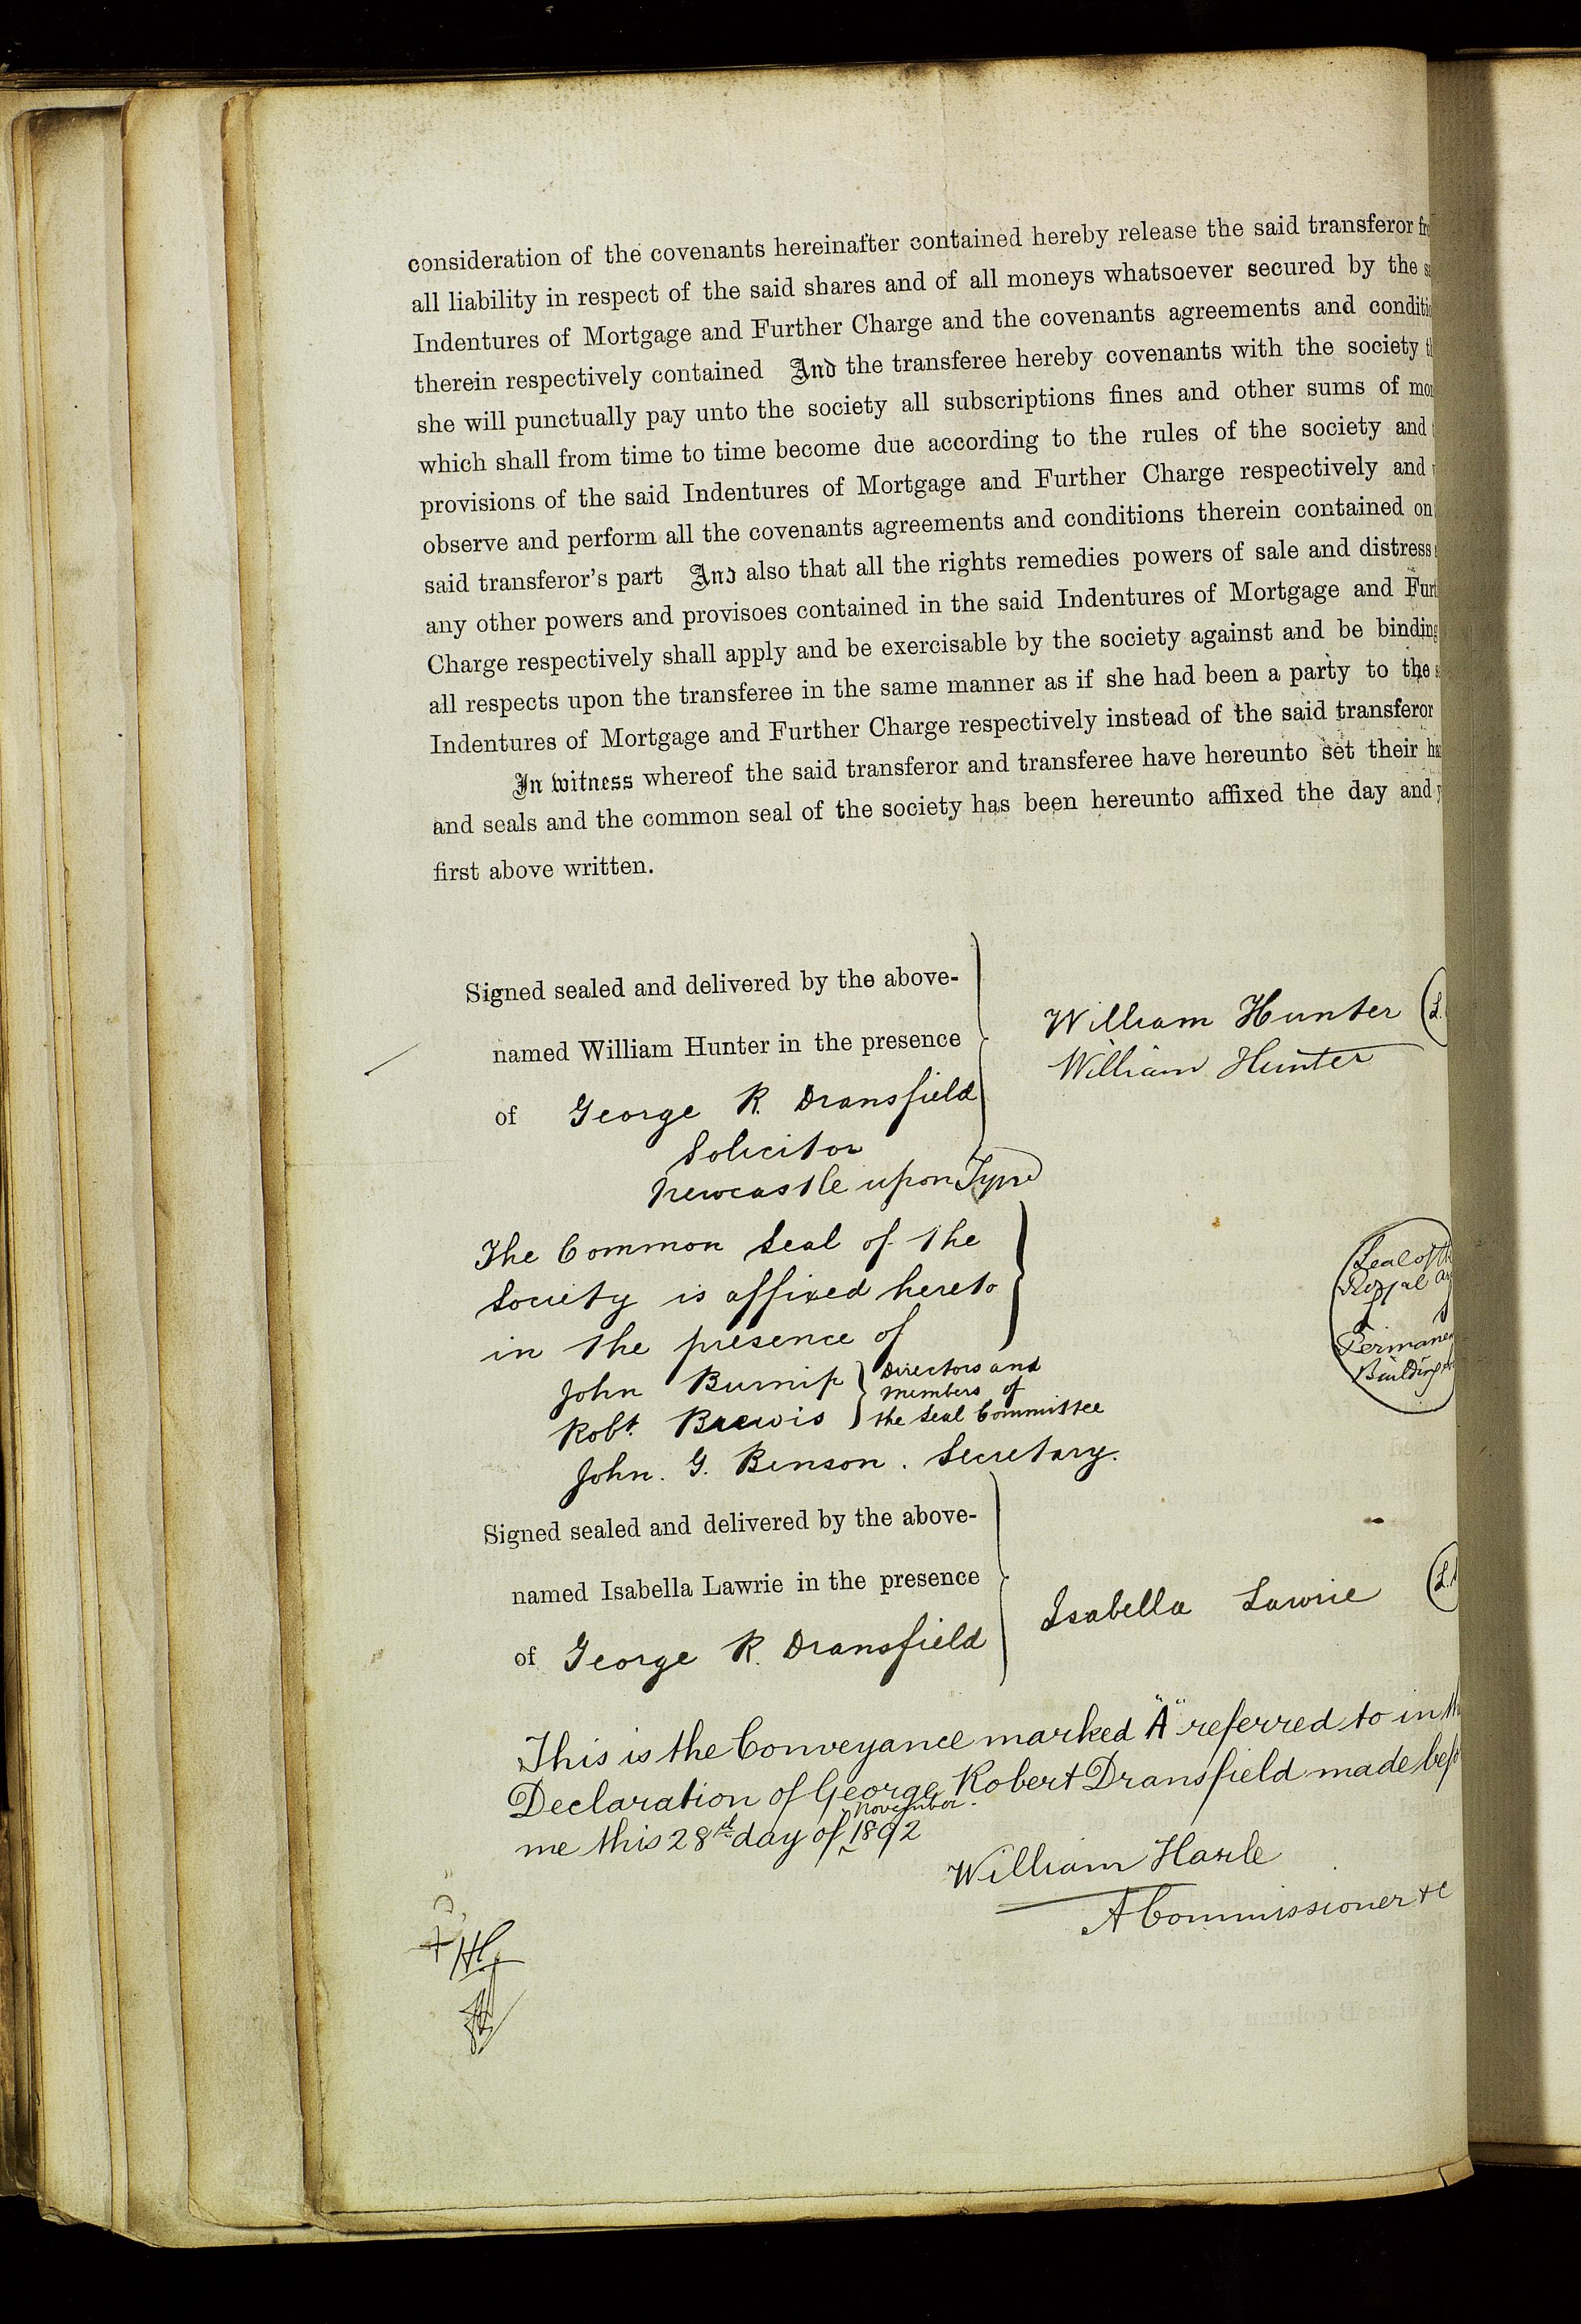 consideration of the covenants hereinafter contained hereby release the said transferor
all liability in respect of the said shares and of all moneys whatsoever secured by the
Indentures of Mortgage and Further Charge and the covenants agreements and
therein respectively contained And the transferee hereby covenants with the society
she will punctually pay unto the society all subscriptions fines and other sums of
which shall from time to time become due according to the rules of the society and
provisions of the said Indentures of Mortgage and Further Charge respectively and
observe and perform all the covenants agreements and conditions therein contained on
said transferor's part And also that all the rights remedies powers of sale and distress
any other powers and provisoes contained in the said Indentures of Mortgage and
Charge respectively shall apply and be exercisable by the society against and be binding
all respects upon the transferee in the same manner as if she had been a party to the
Indentures of Mortgage and Further Charge respectively instead of the said transferor
In witness whereof the said transferor and transferee have hereunto set their
and seals and the common seal of the society has been hereunto affixed the day and
first above written.
Signed sealed and delivered by the above-
named William Hunter in the presence
of George R. Dransfield
Solicitor
Newcastle upon Tyne
William Hunter (L.
William Hunter
The Common Seal of the
Society is affixed hereto
in the presence of
John Burnip } Directors and
members of
Robt. Brewis } the Seal Committee
John. G. Benson. Secretary.
Seal of
Royal
Building
Signed sealed and delivered by the above-
named Isabella Lawrie in the presence
of George R. Dransfield
Isabella Lawrie (L.
This is the Conveyance marked "A" referred to in
Declaration of George Robert Dransfield made
me this 28th day of November 1892
William Harle
A Commissioner &c